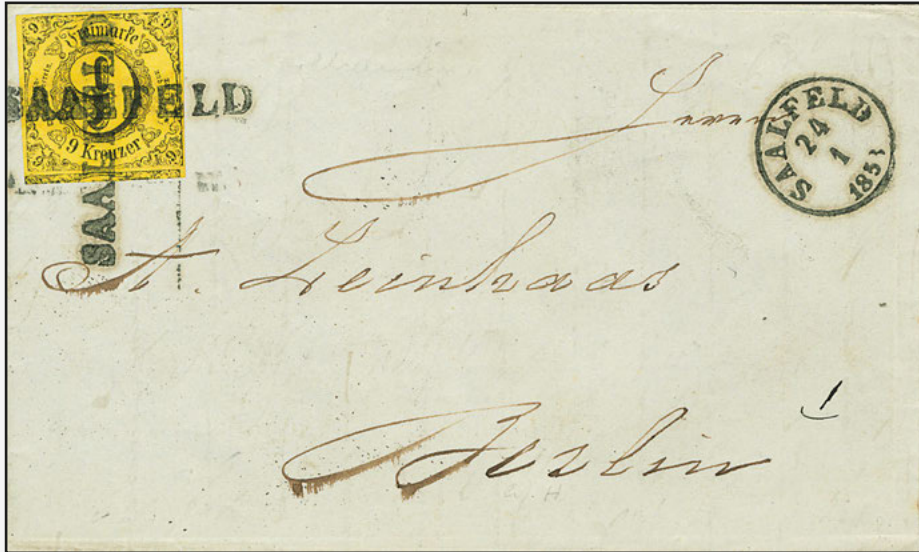 9 9
Freimarke
9
9 Kreuzer
9 9
SAALFELD
SAALFELD
SAALFELD
24
1
Herrn
A. Leinhaas
Berlin